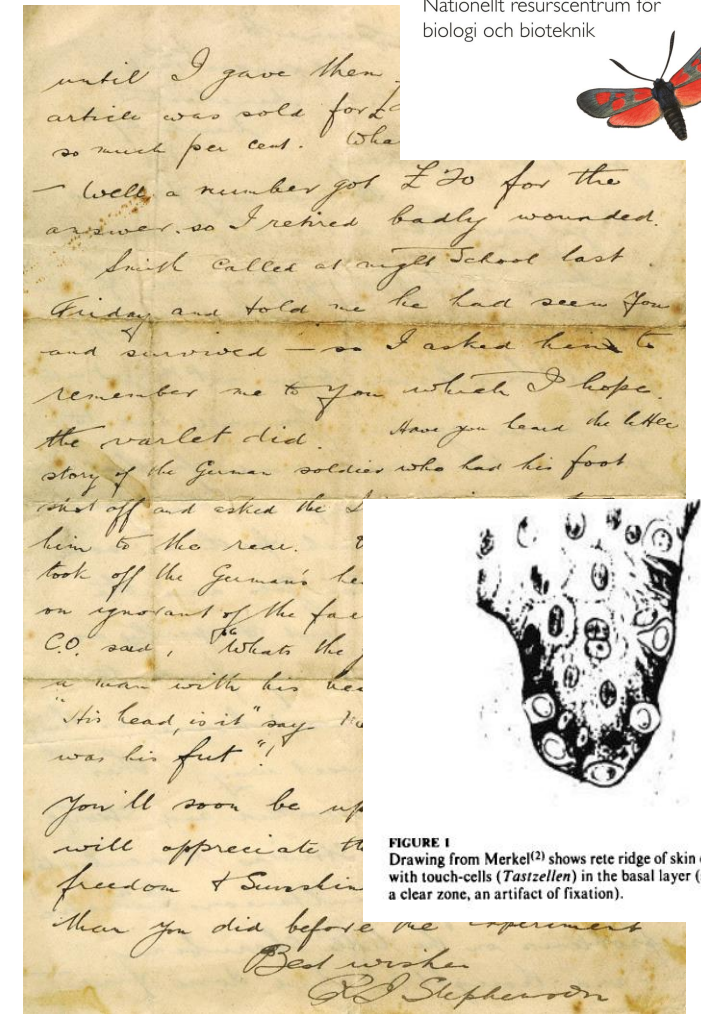 Nationellt resurscentrum för
biologi och bioteknik
until I gave them
article was sold for £
so much per cent. Wha
– Well, a number got £20 for the
answer. so I retired badly wounded.
Smith called at night School last
Friday and told me he had seen you
and survived – so I asked him to
remember me to you which I hope
the varlet did. Have you heard the little
story of the German soldier who had his foot
shot off and asked the
him to the rear.
took off the German's hea
on ignorant of the fac
C.O. said, "Whats the
a man with his hea
"His head, is it" say
was his fut"!
You'll soon be up
will appreciate th
freedom & Sunshin
than you did before the experiment
Best wishes
Stephenson
FIGURE 1
Drawing from Merkel(2) shows rete ridge of skin
with touch-cells (Tastzellen) in the basal layer (
a clear zone, an artifact of fixation).